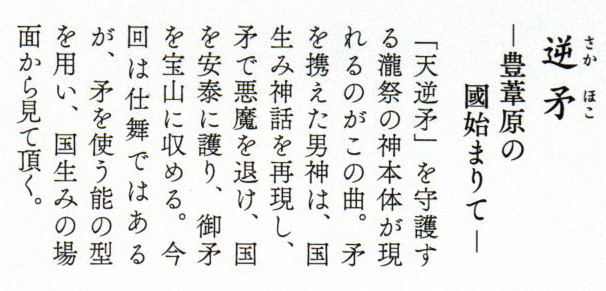 さか ほこ
逆矛
―豊葦原の
國始まりて―
「天逆矛」を守護す
る瀧祭の神本体が現
れるのがこの曲。矛
を携えた男神は、国
生み神話を再現し、
矛で悪魔を退け、国
を安泰に護り、御矛
を宝山に収める。今
回は仕舞ではある
が、矛を使う能の型
を用い、国生みの場
面から見て頂く。